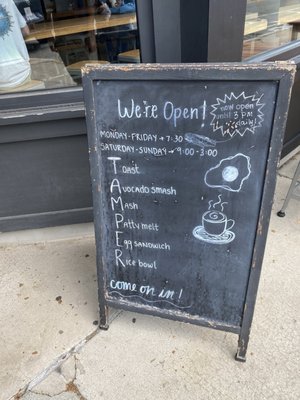 We're Open!
now open until 3 pm daily!
MONDAY-FRIDAY → 7:30
SATURDAY-SUNDAY → 9:00-3:00
Toast
Avocado Smash
Mash
Patty melt
Egg sandwich
Rice bowl
come on in!